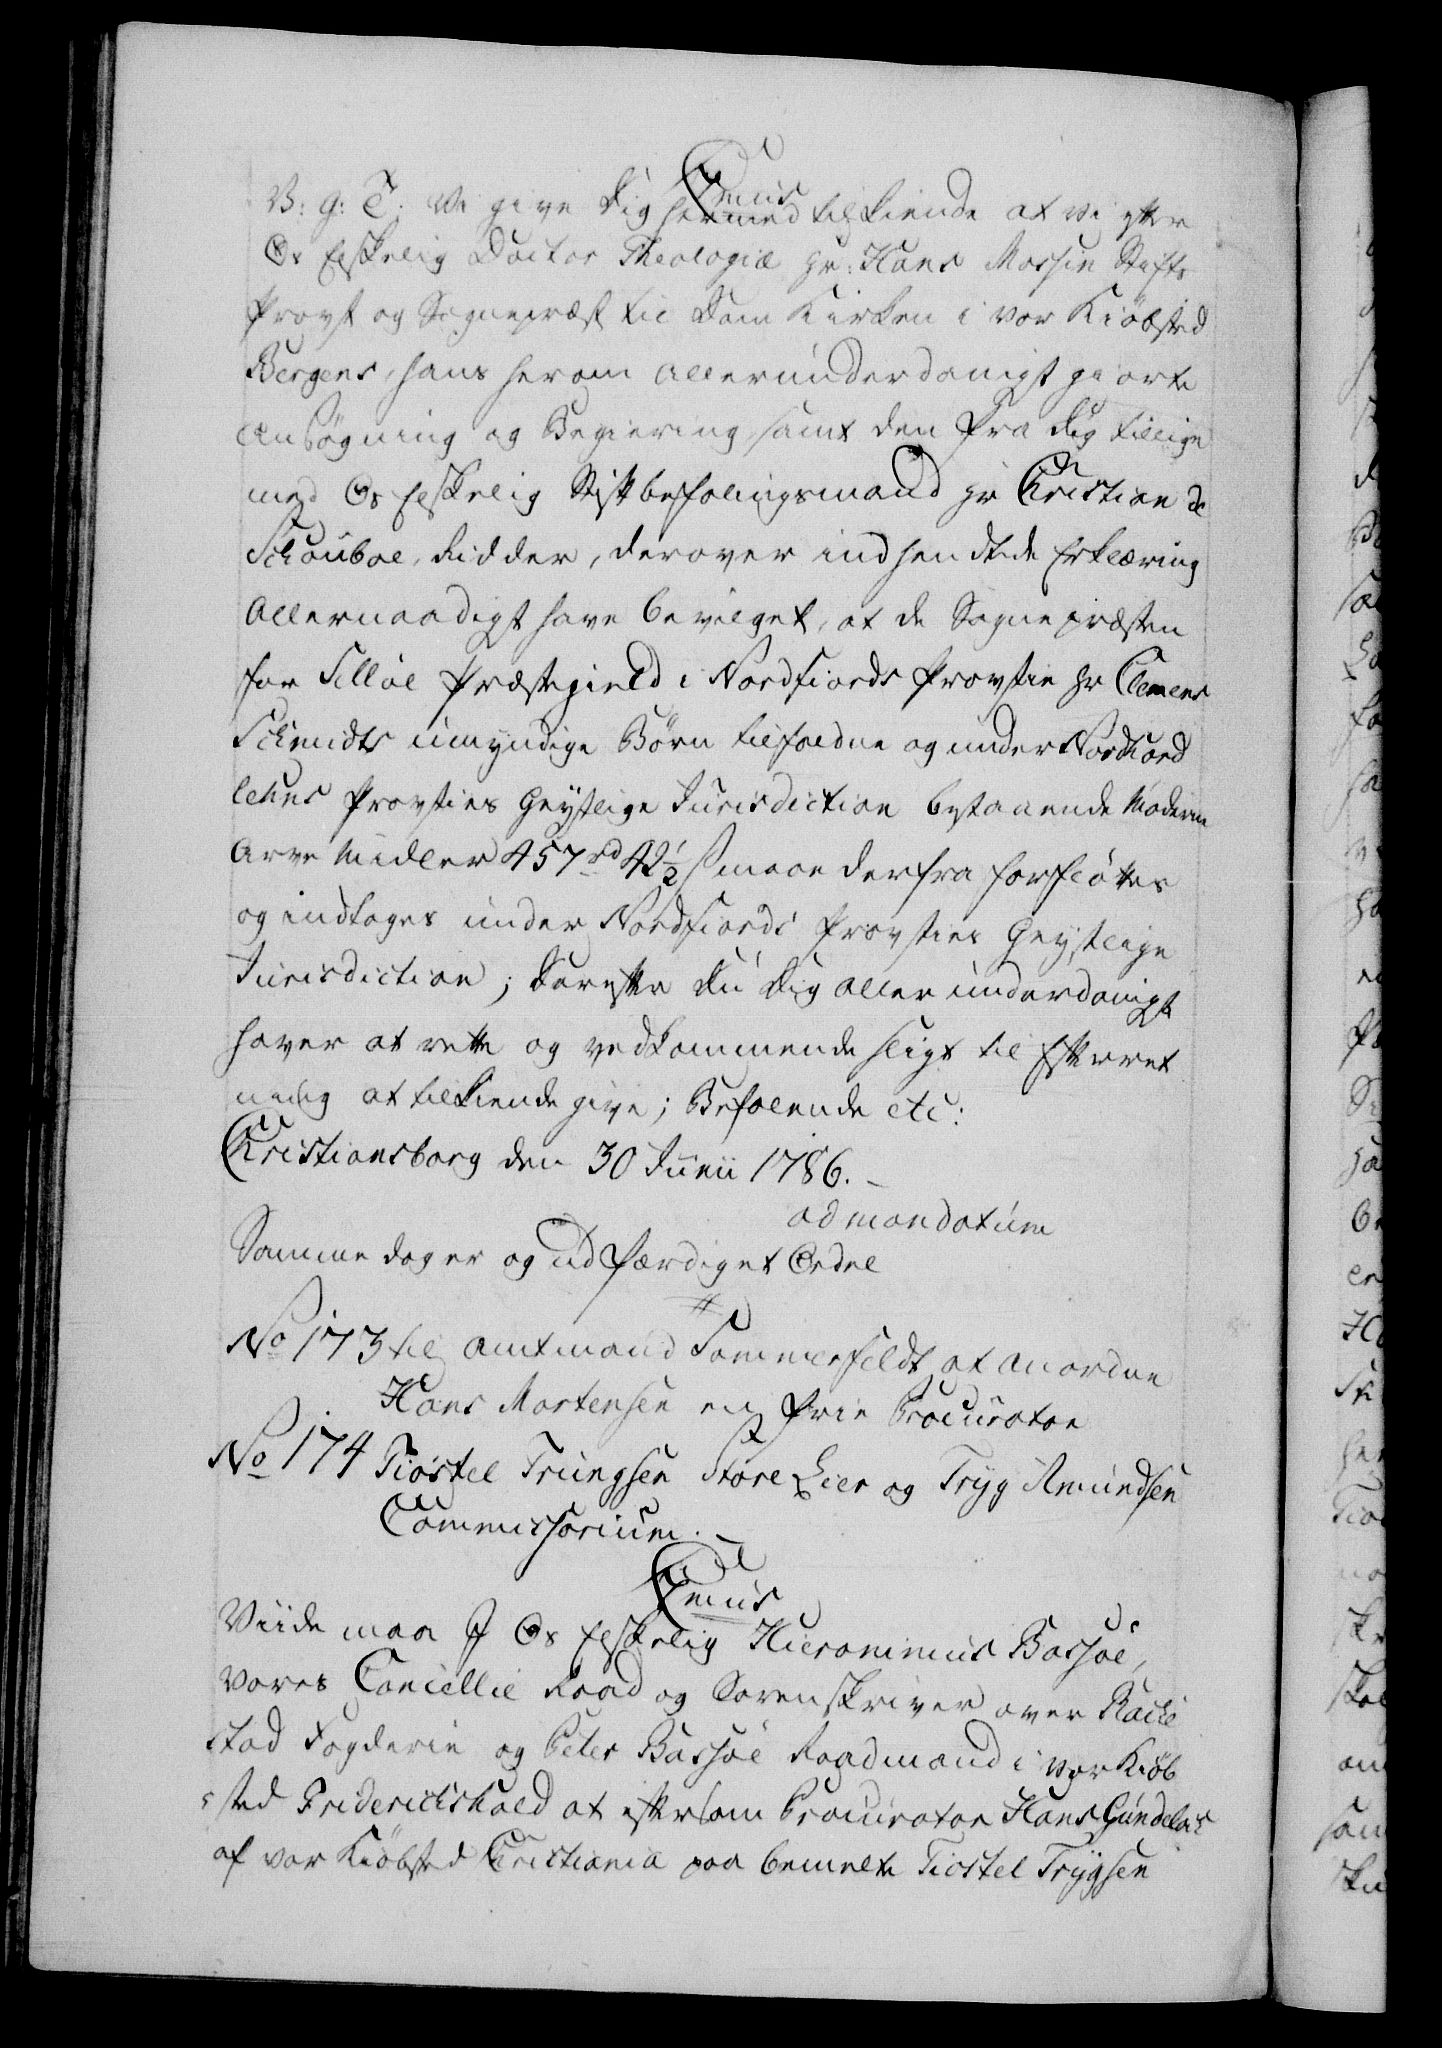 Cmus
V: G: T: Vi give dig hermed tilkiende at vi efter
Os Elskelig Doctor Theologiæ Hr: Hans Mossin Stifts
Provst og Sognepræst til Dom Kirken i vor Kiøbsted
Bergens, hans herom allerunderdanigst giorte
Ansøgning og Begiering, samt den fra dig tillige
med Os Elskelig Stiftbefalingsmand Hr Christian de
Schouboe, Ridder, derover indhendtede Erklæring
Allernaadigst have bevilget, at de Sognepræsten
for Selløe Præstegield i Nordfiords Provstie Hr Clemens
Schmidts umyndige Børn tilfaldne og under Nordfiord
lehns Provsties Geystlige Jurisdiction bestaaende Møderne
Arve Midler 457 rd 42½ ß maae derfra forfløttes
og indtages under Nordfiords Provsties Geystlige
Jurisdiction; Derefter du dig allerunderdanigst
haver at rette og vedkommende sligt til Efterret
ning at tilkiende give; Befalende etc:
Christiansborg den 30 Junii 1786.-
ad mandatum
Samme dag er og udfærdiget Ordre
#
No 173 til Amtmand Sommerfeldt at anordne
Hans Mortensen en frie Procurator
No 174 Tiøstel Trungsen Store Lier og Tryg Amundsen
Commissorium.-
Cmus
Viide maa I Os Elskelig Hieronimus Bassøe,
Vores Cancellie Raad og Sorenskriver over Racke
stad Fogderie og Peter Bassøe Raadmand i vor Kiøb
sted Friderichshald at eftersom Procurator Hans Gundelas
af vor Kiøbsted Christiania paa bemelte Tiøstel Trygsen